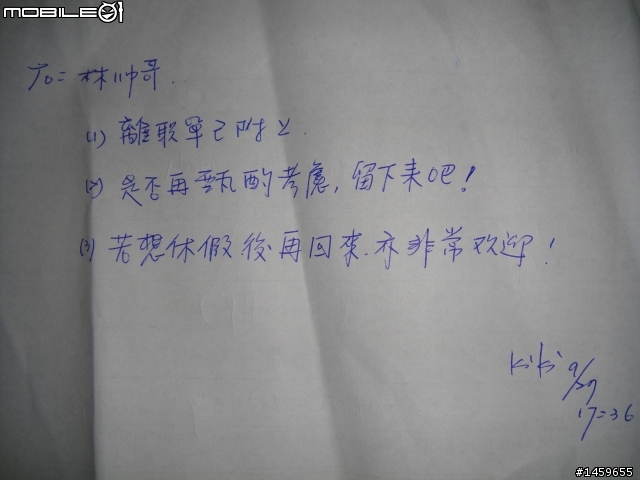 MOBILE01
To= 林帅哥.
(1) 離职單已附上.
(2) 是否再甄酌考慮, 留下来吧!
(3) 若想休假後再回來. 亦非常欢迎!
Kiki 9/29
17=36
#1459655